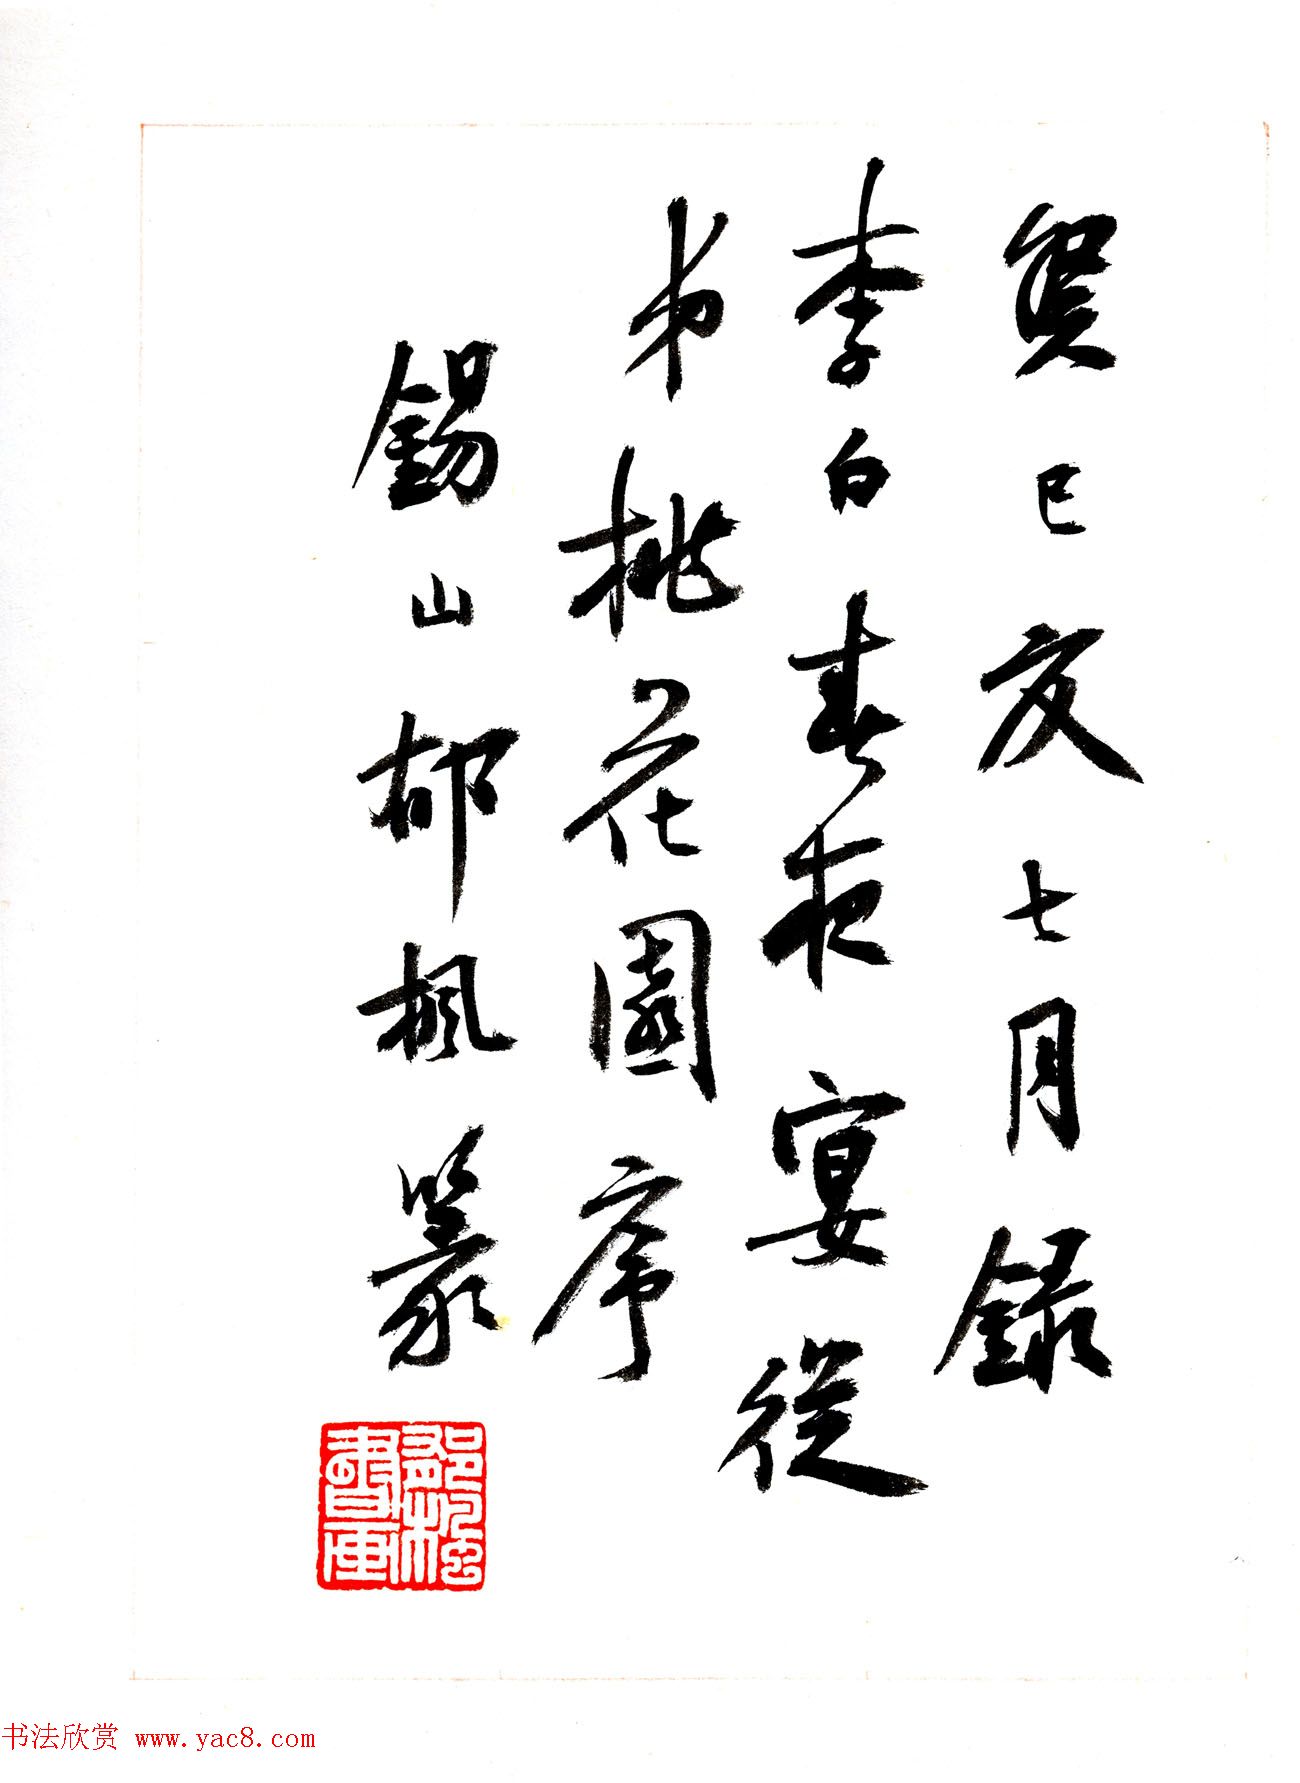 癸巳夏七月録
李白春夜宴從
弟桃花園序
錫山郁楓篆
书法欣赏 www.yac8.com